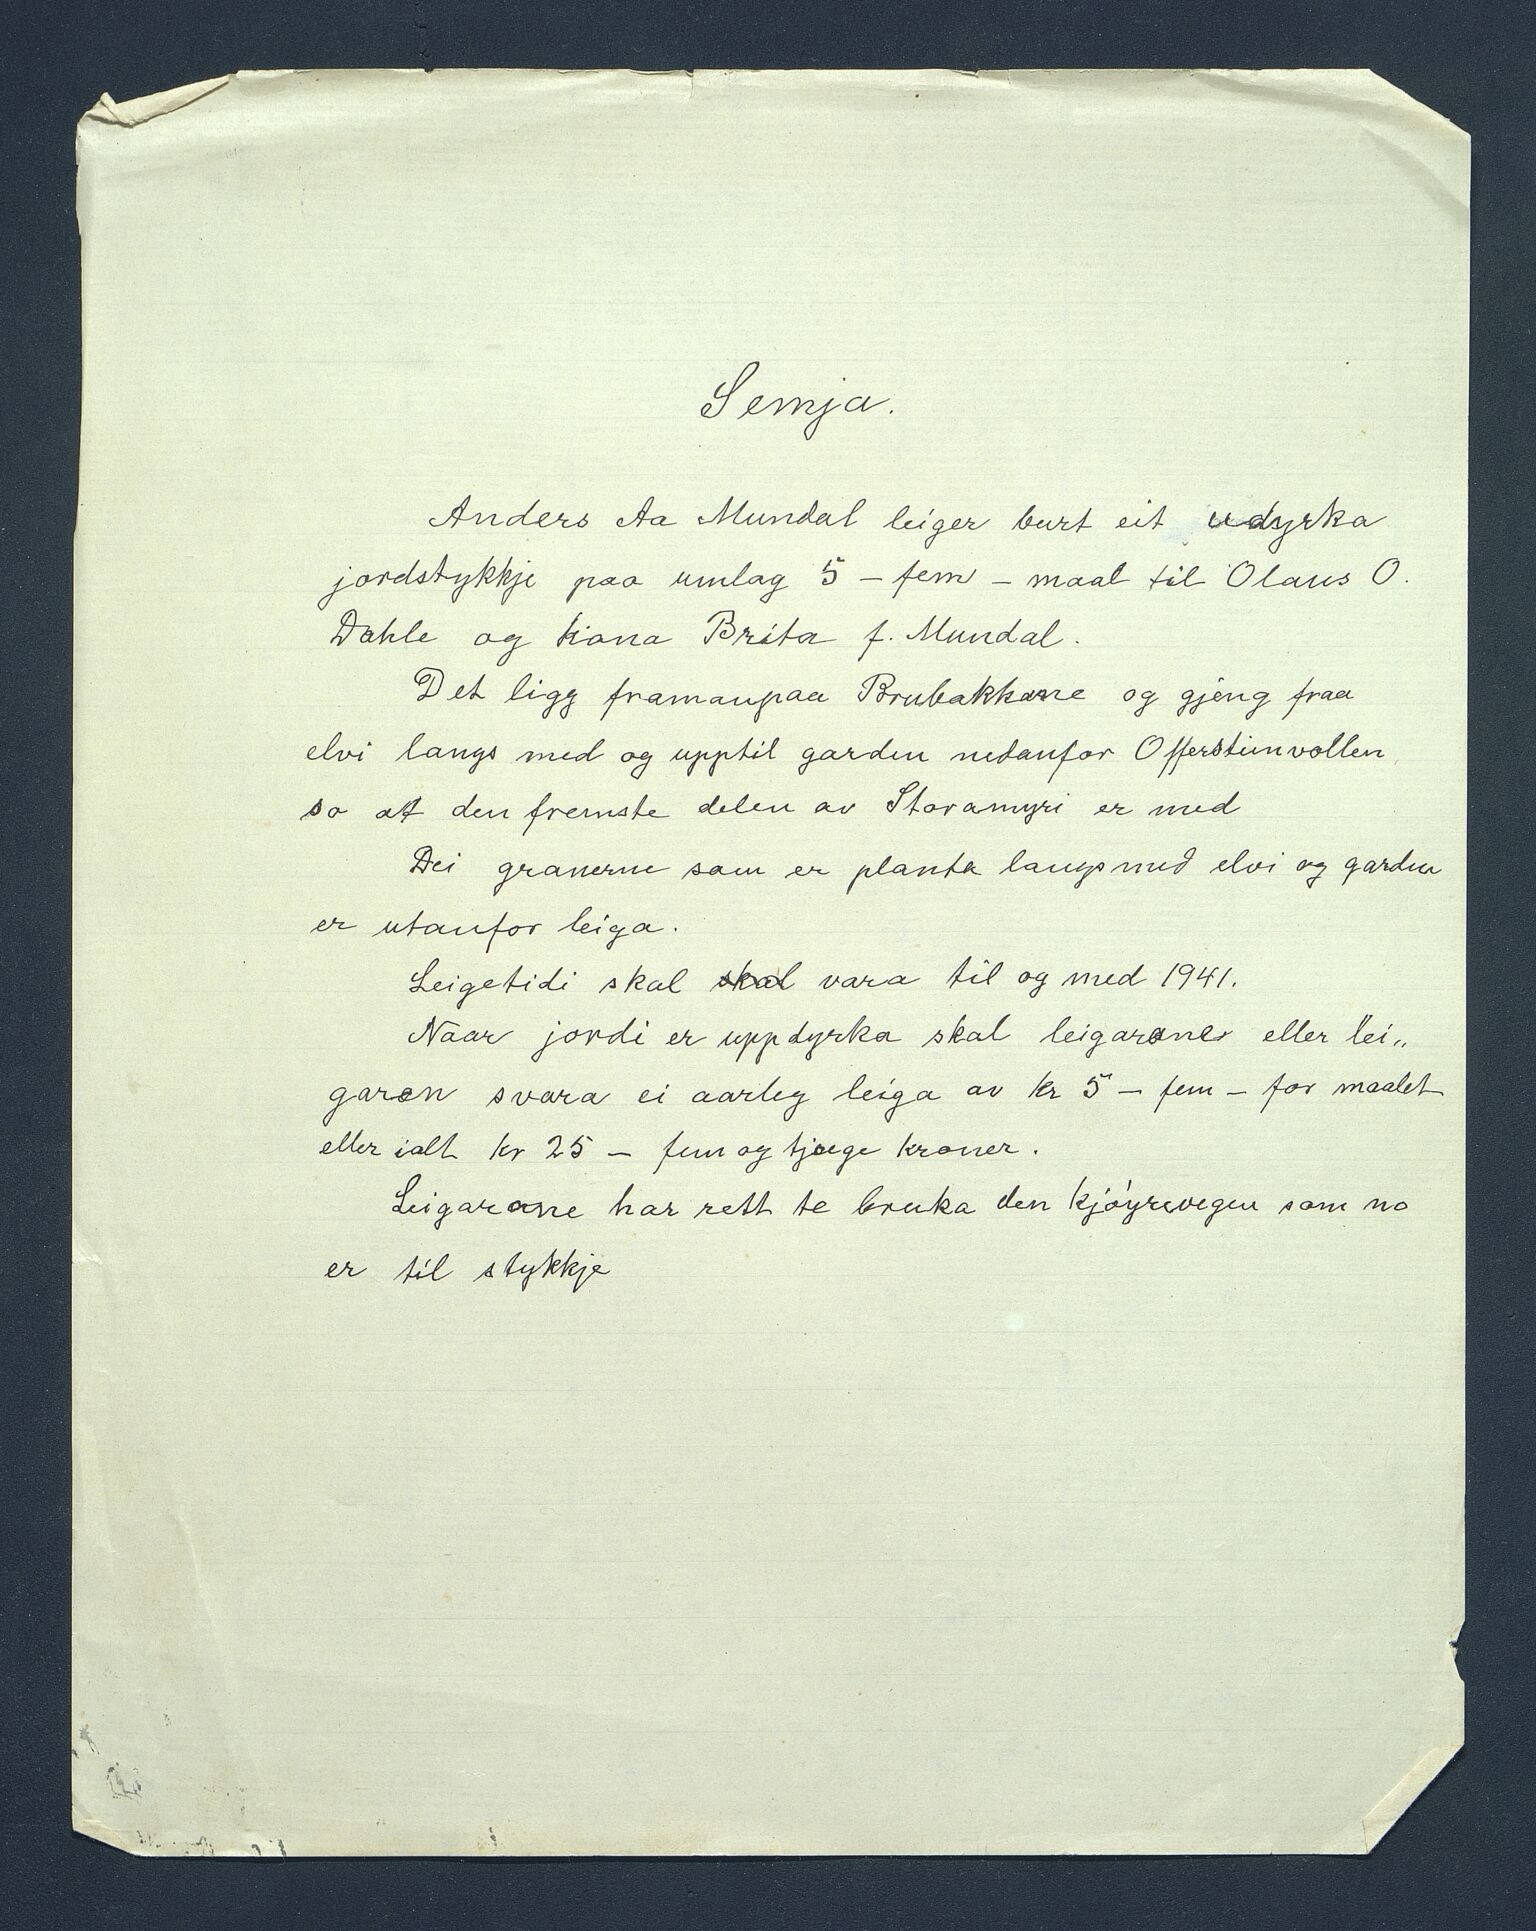 Semja.
Anders Aa Mundal leiger burt eit udyrka
jordstykkje paa umlag 5 – fem – maal til Olaus O.
Dahle og kona Brita f. Mundal.
Det ligg framanpaa Brubakkane og gjeng fraa
elvi langs med og upptil garden nedanfor Offersteinvollen
so at den fremste delen av Storamyri er med
Dei granerne som er planta langs med elvi og garden
er utanfor leiga.
Leigetidi skal skal vara til og med 1941.
Naar jordi er uppdyrka skal leigarane eller lei„
garen svara ei aarleg leiga av kr 5 – fem – for maalet
eller ialt kr 25 – fem og tjuge kroner.
Leigarane har rett te bruka den kjøyrevegen som no
er til stykkje